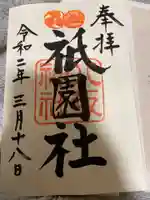 奉拝
祇園社
令和二年三月十八日